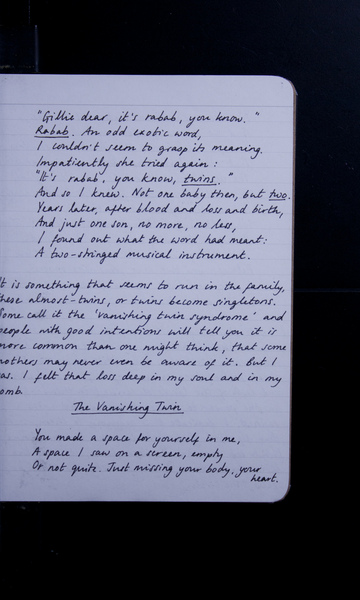 "Gillie dear, it's rabab, you know."
Rabab. An odd exotic word,
I couldn't seem to grasp its meaning.
Impatiently she tried again:
"It's rabab, you know, twins."
And so I knew. Not one baby then, but two.
Years later, after blood and loss and birth,
And just one son, no more, no less,
I found out what the word had meant:
A two-stringed musical instrument.
It is something that seems to run in the family,
these almost-twins, or twins become singletons.
Some call it the 'vanishing twin syndrome' and
people with good intentions will tell you it is
more common than one might think, that some
mothers may never even be aware of it. But I
was. I felt that loss deep in my soul and in my
omb.
The Vanishing Twin
You made a space for yourself in me,
A space I saw on a screen, empty
Or not quite. Just missing your body, your
heart.